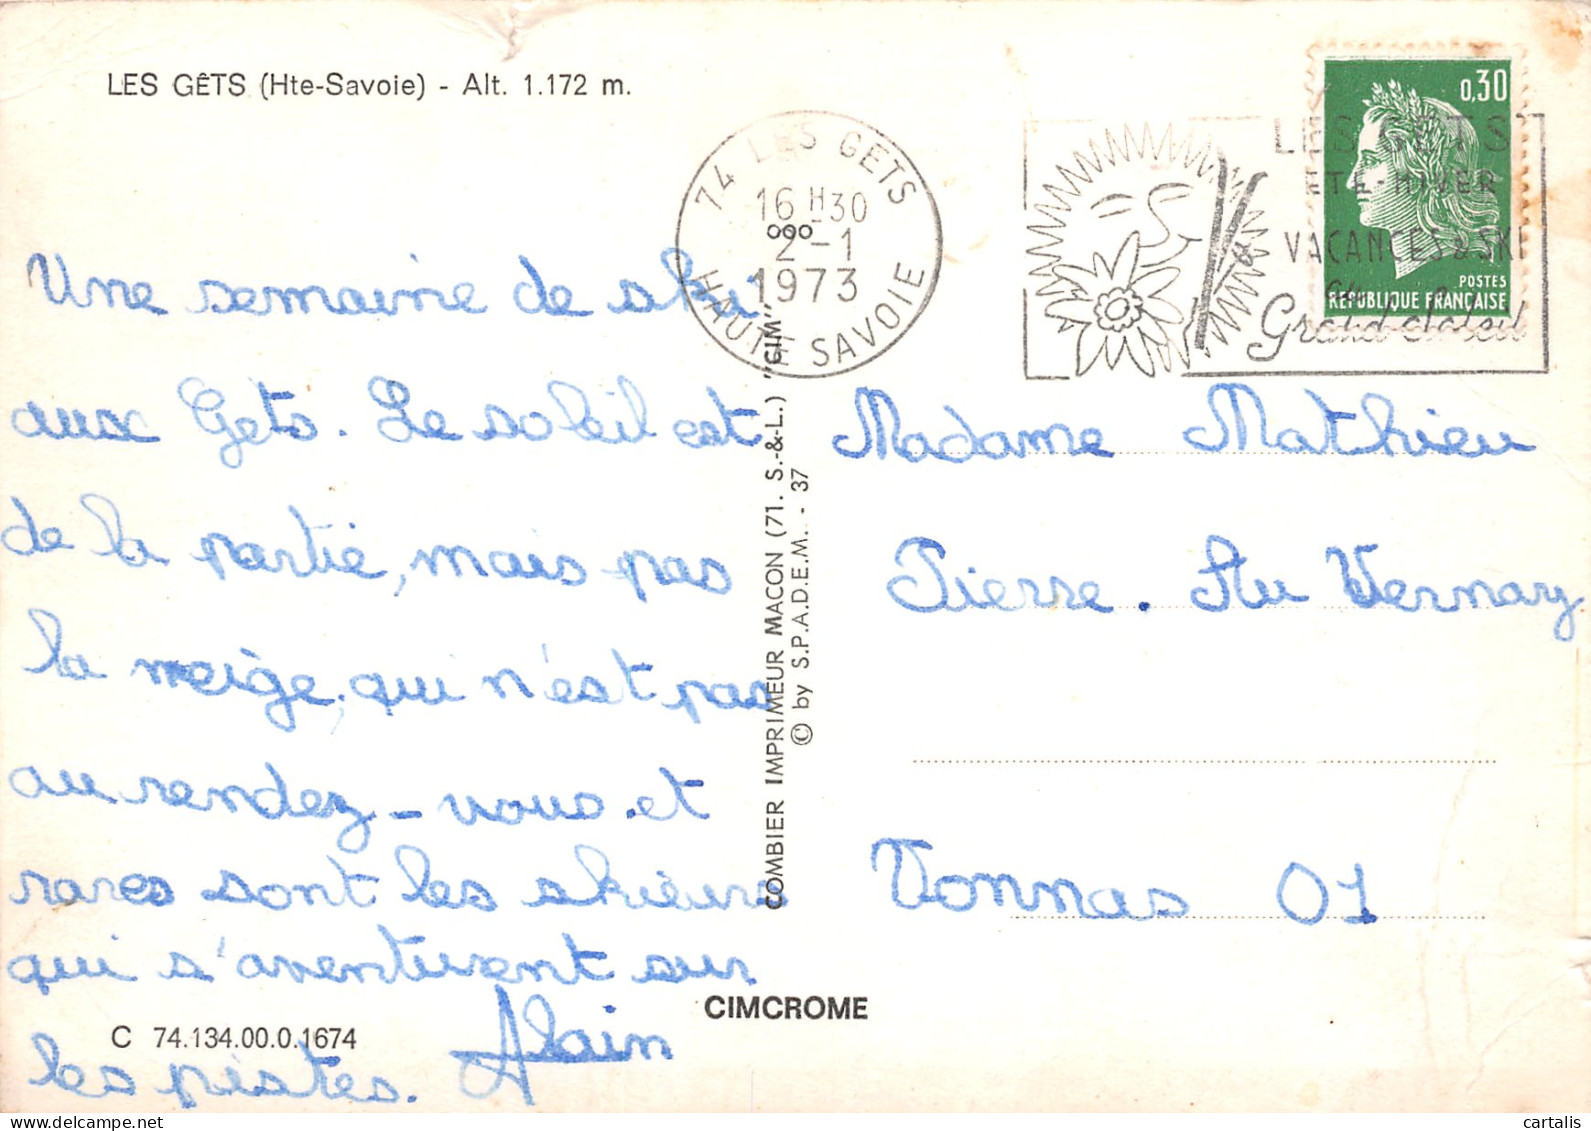 LES GÊTS (Hte-Savoie) - Alt. 1.172 m.
74 LES GETS
16 H 30
2 - 1
1973
HAUTE SAVOIE
LES GETS
ETE-HIVER
VACANCES & SKI
Grand Soleil
0,30
POSTES
REPUBLIQUE FRANÇAISE
Une semaine de ski
aux Gets. Le soleil est
de la partie, mais pas
la neige, qui n'est pas
au rendez-vous et
rares sont les skieurs
qui s'aventurent sur
les pistes. Alain
Madame Mathieu
Pierre. Au Vernay
Vonnas 01
COMBIER IMPRIMEUR MACON (71. S.-&-L.) "CIM"
© by S.P.A.D.E.M. - 37
CIMCROME
C 74.134.00.0.1674
cartalis